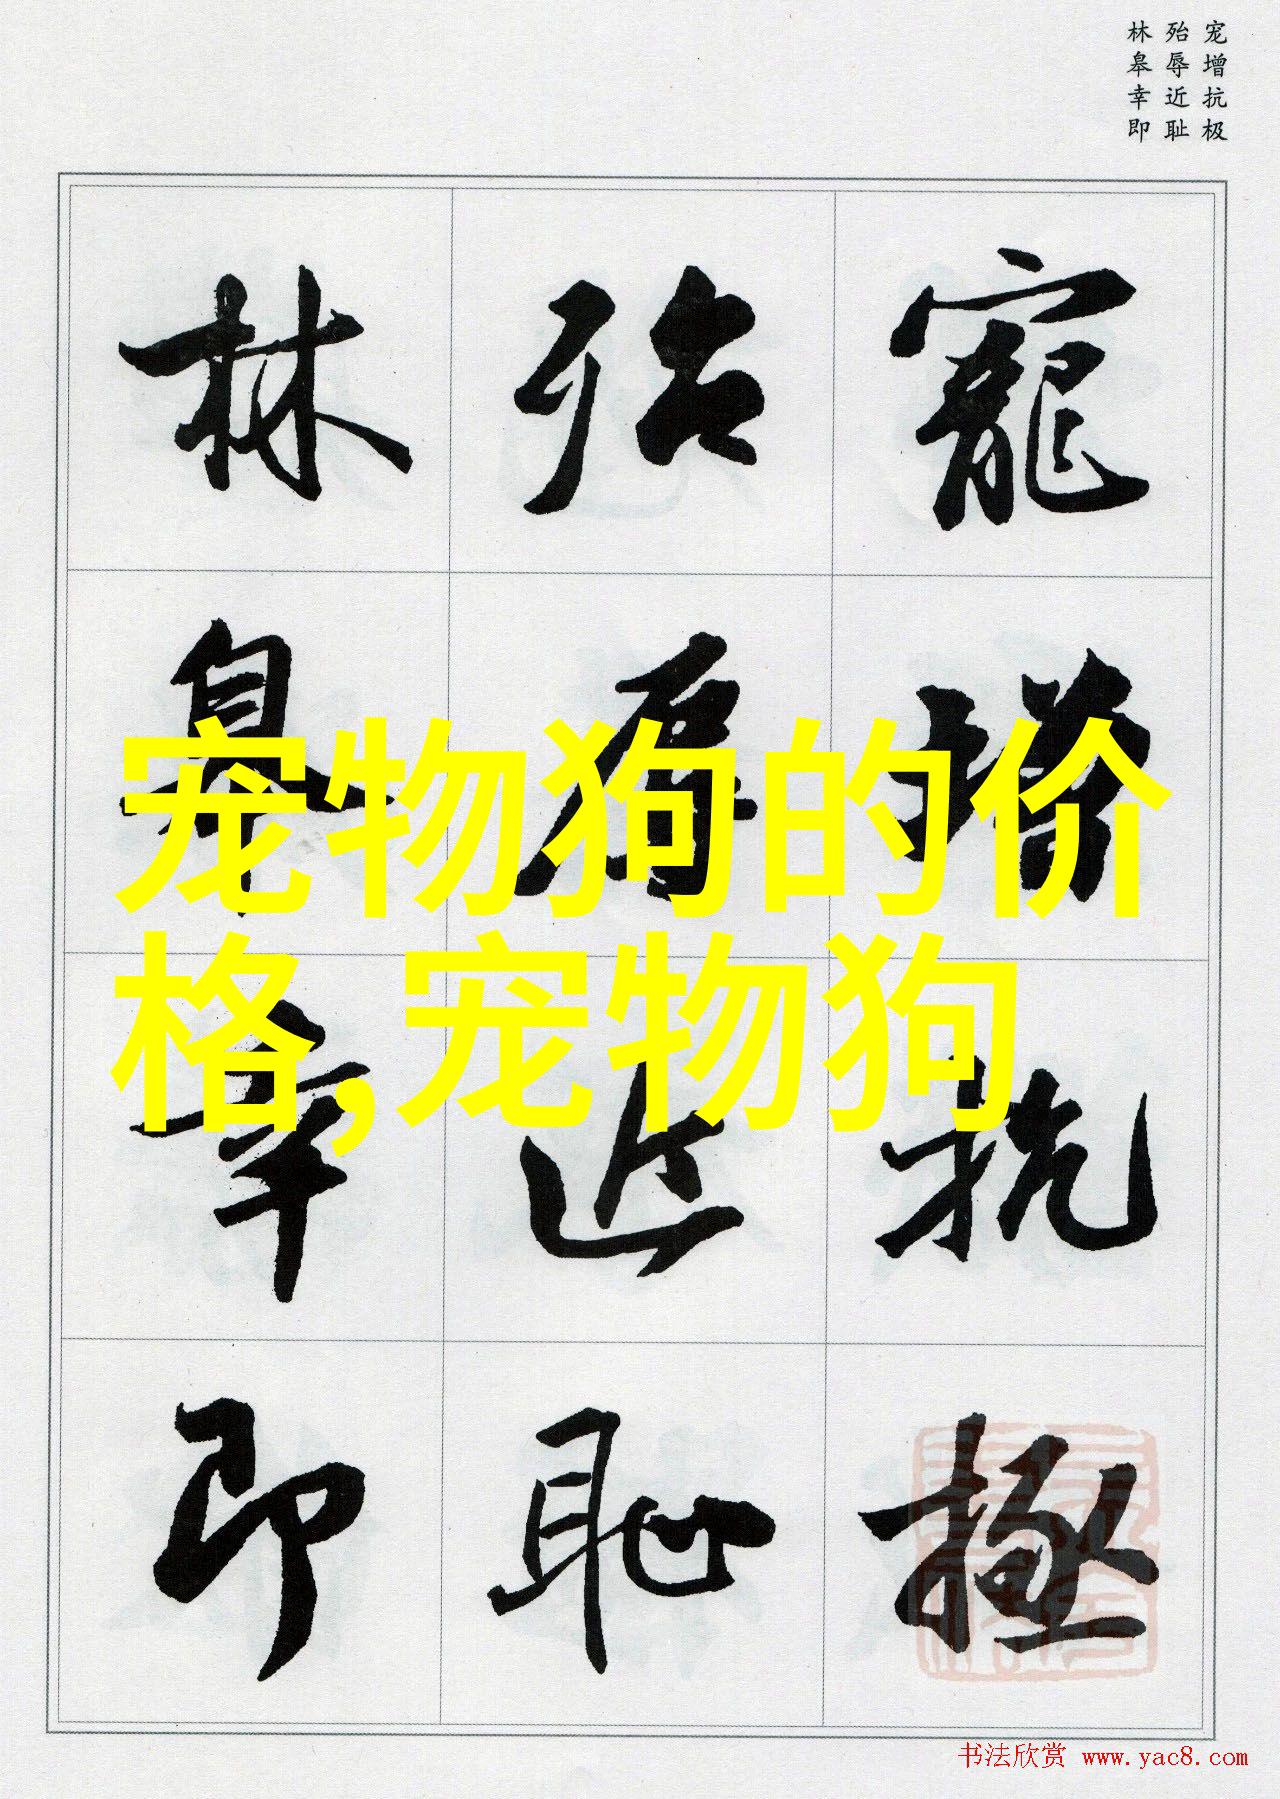 宠增抗极
殆辱近耻
林皋幸即
寵增抗極
殆辱近恥
林皋幸即
宠物狗的价
格,宠物狗
书法欣赏 www.yac8.com